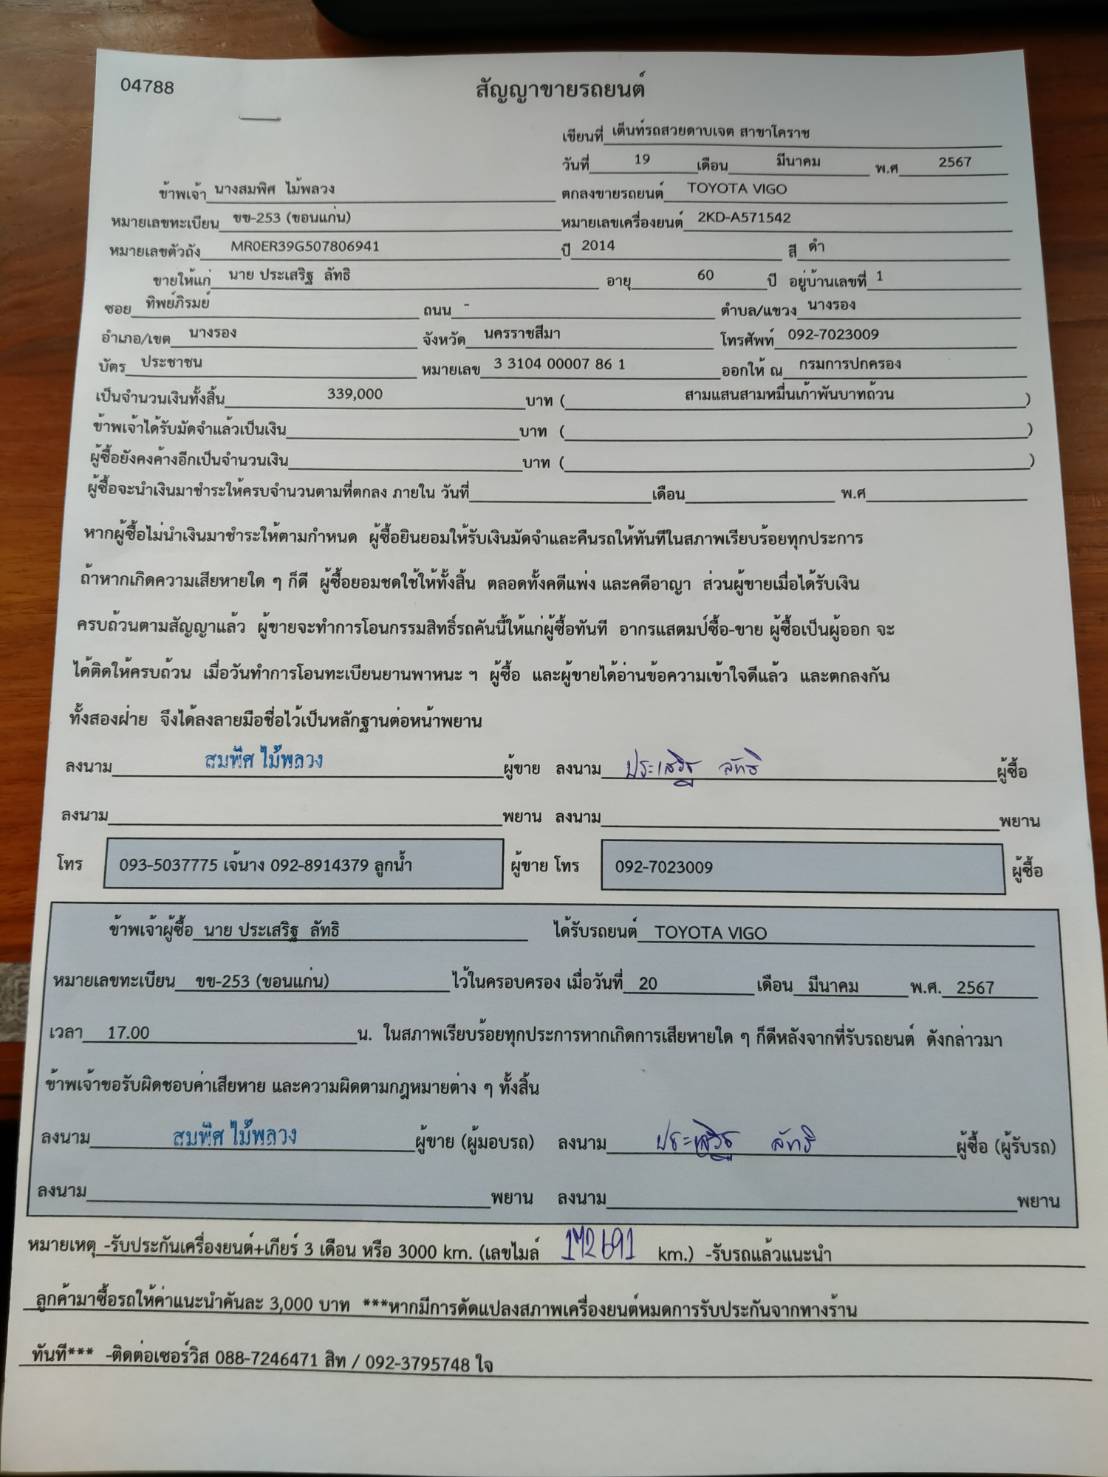 04788
สัญญาขายรถยนต์
เขียนที่ เต็นท์รถสวยดาบเจต สาขาโคราช
วันที่ 19 เดือน มีนาคม พ.ศ 2567
ข้าพเจ้า นางสมพิศ ไม้พลวง ตกลงขายรถยนต์ TOYOTA VIGO
หมายเลขทะเบียน ขข-253 (ขอนแก่น) หมายเลขเครื่องยนต์ 2KD-A571542
หมายเลขตัวถัง MR0ER39G507806941 ปี 2014 สี ดำ
ขายให้แก่ นาย ประเสริฐ ลัทธิ อายุ 60 ปี อยู่บ้านเลขที่ 1
ซอย ทิพย์ภิรมย์ ถนน - ตำบล/แขวง นางรอง
อำเภอ/เขต นางรอง จังหวัด นครราชสีมา โทรศัพท์ 092-7023009
บัตร ประชาชน หมายเลข 3 3104 00007 86 1 ออกให้ ณ กรมการปกครอง
เป็นจำนวนเงินทั้งสิ้น 339,000 บาท ( สามแสนสามหมื่นเก้าพันบาทถ้วน )
ข้าพเจ้าได้รับมัดจำแล้วเป็นเงิน บาท ( )
ผู้ซื้อยังคงค้างอีกเป็นจำนวนเงิน บาท ( )
ผู้ซื้อจะนำเงินมาชำระให้ครบจำนวนตามที่ตกลง ภายใน วันที่ เดือน พ.ศ
หากผู้ซื้อไม่นำเงินมาชำระให้ตามกำหนด ผู้ซื้อยินยอมให้รับเงินมัดจำและคืนรถให้ทันทีในสภาพเรียบร้อยทุกประการ
ถ้าหากเกิดความเสียหายใด ๆ ก็ดี ผู้ซื้อยอมชดใช้ให้ทั้งสิ้น ตลอดทั้งคดีแพ่ง และคดีอาญา ส่วนผู้ขายเมื่อได้รับเงิน
ครบถ้วนตามสัญญาแล้ว ผู้ขายจะทำการโอนกรรมสิทธิ์รถคันนี้ให้แก่ผู้ซื้อทันที อากรแสตมป์ซื้อ-ขาย ผู้ซื้อเป็นผู้ออก จะ
ได้ติดให้ครบถ้วน เมื่อวันทำการโอนทะเบียนยานพาหนะ ฯ ผู้ซื้อ และผู้ขายได้อ่านข้อความเข้าใจดีแล้ว และตกลงกัน
ทั้งสองฝ่าย จึงได้ลงลายมือชื่อไว้เป็นหลักฐานต่อหน้าพยาน
ลงนาม สมพิศ ไม้พลวง ผู้ขาย ลงนาม ประเสริฐ ลัทธิ ผู้ซื้อ
ลงนาม พยาน ลงนาม พยาน
โทร 093-5037775 เจ้นาง 092-8914379 ลูกน้ำ ผู้ขาย โทร 092-7023009 ผู้ซื้อ
ข้าพเจ้าผู้ซื้อ นาย ประเสริฐ ลัทธิ ได้รับรถยนต์ TOYOTA VIGO
หมายเลขทะเบียน ขข-253 (ขอนแก่น) ไว้ในครอบครอง เมื่อวันที่ 20 เดือน มีนาคม พ.ศ. 2567
เวลา 17.00 น. ในสภาพเรียบร้อยทุกประการหากเกิดการเสียหายใด ๆ ก็ดีหลังจากที่รับรถยนต์ ดังกล่าวมา
ข้าพเจ้าขอรับผิดชอบค่าเสียหาย และความผิดตามกฎหมายต่าง ๆ ทั้งสิ้น
ลงนาม สมพิศ ไม้พลวง ผู้ขาย (ผู้มอบรถ) ลงนาม ประเสริฐ ลัทธิ ผู้ซื้อ (ผู้รับรถ)
ลงนาม พยาน ลงนาม พยาน
หมายเหตุ -รับประกันเครื่องยนต์+เกียร์ 3 เดือน หรือ 3000 km. (เลขไมล์ 172691 km.) -รับรถแล้วแนะนำ
ลูกค้ามาซื้อรถให้ค่าแนะนำคันละ 3,000 บาท ***หากมีการดัดแปลงสภาพเครื่องยนต์หมดการรับประกันจากทางร้าน
ทันที*** -ติดต่อเซอร์วิส 088-7246471 สิท / 092-3795748 ใจ